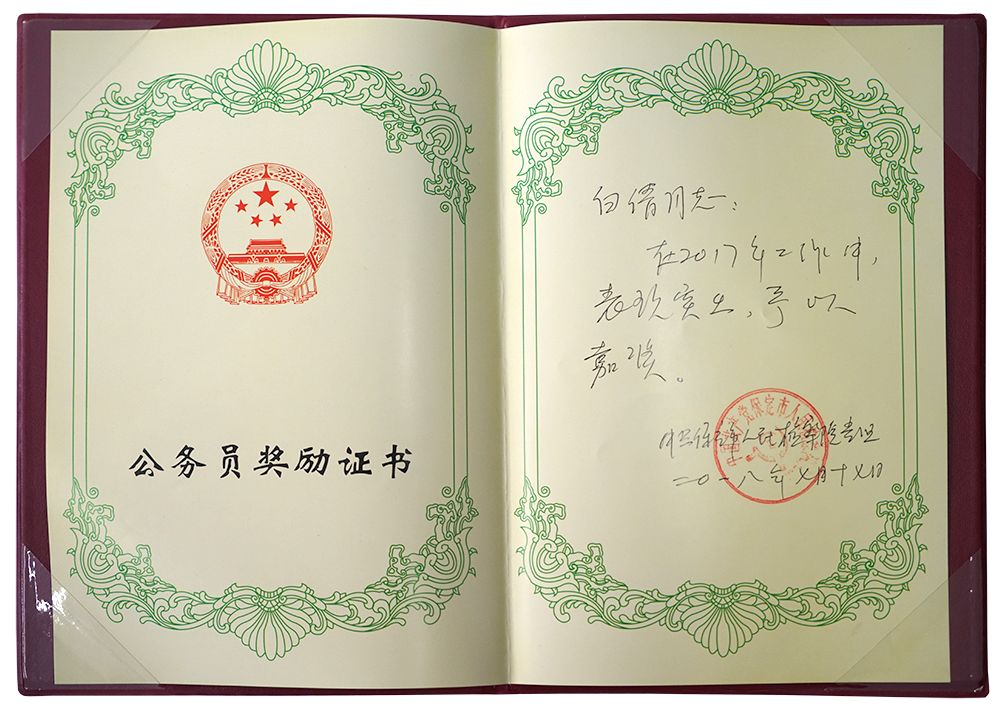 公务员奖励证书
白倩同志：
在2017年工作中，
表现突出，予以
嘉奖。
中共保定市人民检察院党组
二〇一八年七月十七日
中国共产党保定市人民检察院